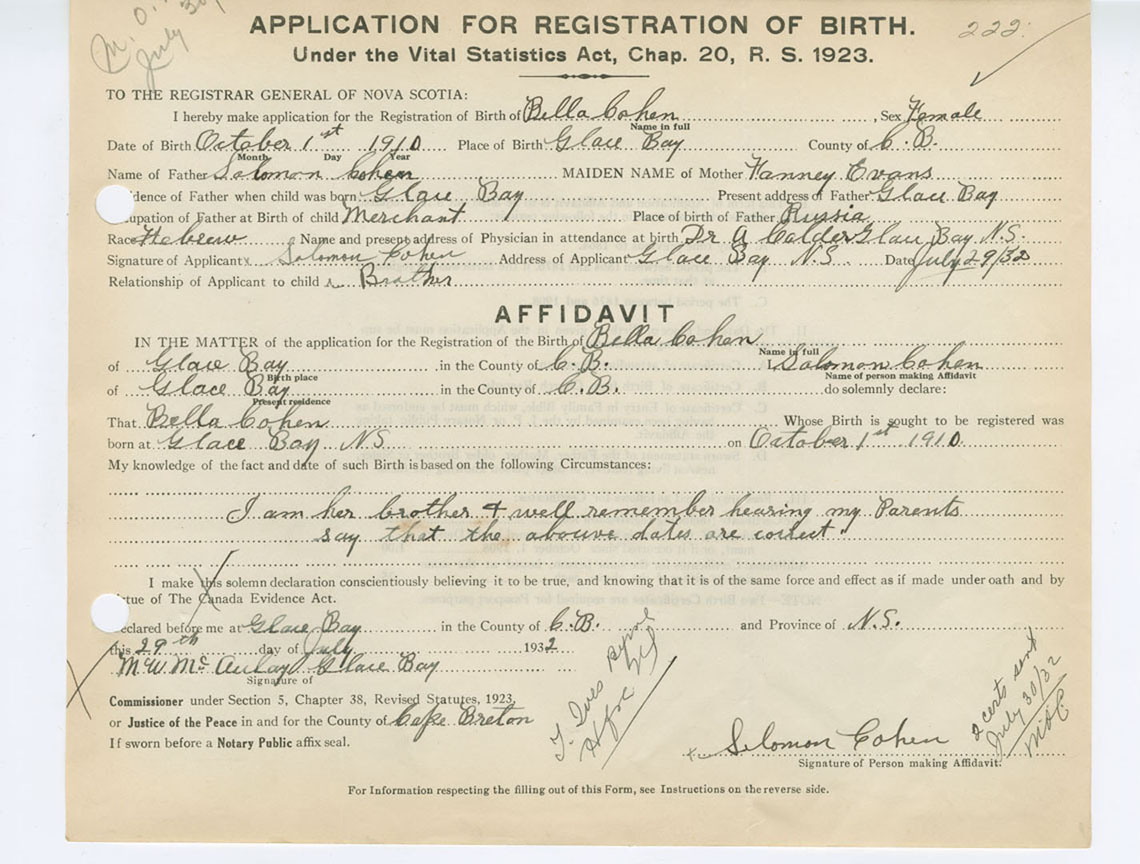 M. O.
July 30/
222.
APPLICATION FOR REGISTRATION OF BIRTH.
Under the Vital Statistics Act, Chap. 20, R. S. 1923.
TO THE REGISTRAR GENERAL OF NOVA SCOTIA:
I hereby make application for the Registration of Birth of Bella Cohen, Sex Female
Name in full
Date of Birth October 1st 1910 Place of Birth Glace Bay County of C.B.
Month Day Year
Name of Father Solomon Cohen MAIDEN NAME of Mother Fanney Evans
dence of Father when child was born Glace Bay Present address of Father Glace Bay
upation of Father at Birth of child Merchant Place of birth of Father Russia
Race Hebrew Name and present address of Physician in attendance at birth Dr A Calder Glace Bay N.S.
Signature of Applicant x Solomon Cohen Address of Applicant Glace Bay N.S. Date July 29/32
Relationship of Applicant to child Brother
AFFIDAVIT
IN THE MATTER of the application for the Registration of the Birth of Bella Cohen
Name in full
of Glace Bay in the County of C.B. I, Solomon Cohen
Birth place Name of person making Affidavit
of Glace Bay in the County of C.B. do solemnly declare:
Present residence
That Bella Cohen Whose Birth is sought to be registered was
born at Glace Bay NS on October 1st 1910
My knowledge of the fact and date of such Birth is based on the following Circumstances:
I am her brother & well remember hearing my Parents
say that the abouve dates are correct
I make this solemn declaration conscientiously believing it to be true, and knowing that it is of the same force and effect as if made under oath and by
rtue of The Canada Evidence Act.
eclared before me at Glace Bay in the County of C.B. and Province of N.S.
this 29th day of July 1932
M W McAulay Glace Bay
Signature of
Commissioner under Section 5, Chapter 38, Revised Statutes, 1923,
or Justice of the Peace in and for the County of Cape Breton
If sworn before a Notary Public affix seal.
Solomon Cohen
Signature of Person making Affidavit.
2 certs sent
July 30/32
For Information respecting the filling out of this Form, see Instructions on the reverse side.